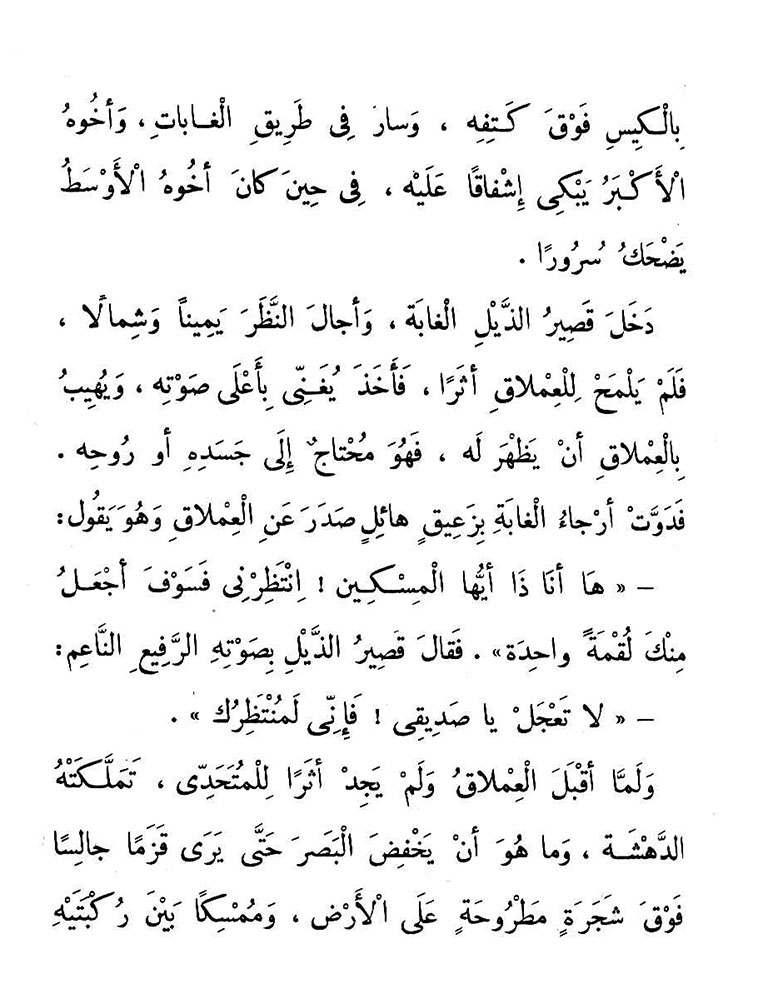 بِالْكِيسِ فَوْقَ كَتِفِهِ ، وَسارَ فِى طَرِيقِ الْغاباتِ ، وَأخُوهُ
الْأَكْبَرُ يَبْكِى إِشْفاقًا عَلَيْهِ ، فِى حِينَ كانَ أخُوهُ الْأَوْسَطُ
يَضْحَكُ سُرُورًا .
دَخَلَ قَصِيرُ الذَّيْلِ الْغابَةَ ، وَأجالَ النَّظَرَ يَمِيناً وَشِمالًا ،
فَلَمْ يَلْمَحْ لِلْعِمْلاقِ أثَرًا ، فَأَخَذَ يُغَنِّى بِأَعْلَى صَوْتِهِ ، وَيُهِيبُ
بِالْعِمْلاقِ أنْ يَظْهَرَ لَه ، فَهُوَ مُحْتاجٌ إِلَى جَسَدِهِ أو رُوحِه .
فَدَوَّتْ أرْجاءُ الْغابَةِ بِزَعِيقٍ هائِلٍ صَدَرَ عَنِ الْعِمْلاقِ وَهُوَ يَقُول :
– « هَا أنَا ذَا أيُّها الْمِسْكِين ! اِنْتَظِرْنِى فَسَوْفَ أجْعَلُ
مِنْكَ لُقْمَةً واحِدَة » . فَقالَ قَصِيرُ الذَّيْلِ بِصَوْتِهِ الرَّفِيعِ النَّاعِم :
– « لا تَعْجَلْ يا صَدِيقِى ! فَإِنِّى لَمُنْتَظِرُك » .
وَلَمَّا أقْبَلَ الْعِمْلاقُ وَلَمْ يَجِدْ أثَرًا لِلْمُتَحَدِّى ، تَمَلَّكَتْهُ
الدَّهْشَة ، وَما هُوَ أنْ يَخْفِضَ الْبَصَرَ حَتَّى يَرَى قَزَمًا جالِسًا
فَوْقَ شَجَرَةٍ مَطْرُوحَةٍ عَلَى الْأَرْضِ ، وَمُمْسِكًا بَيْنَ رُكْبَتَيْهِ